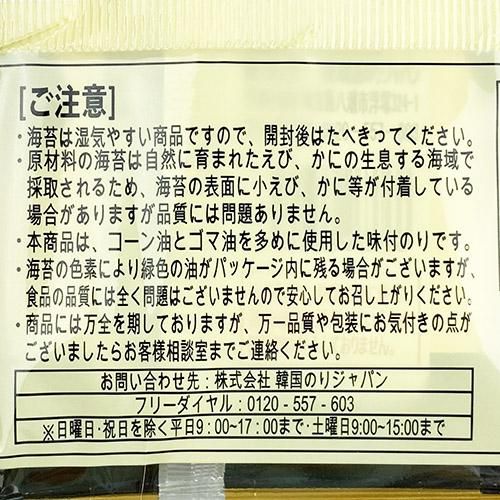 [ご注意]
・海苔は湿気やすい商品ですので、開封後はたべきってください。
・原材料の海苔は自然に育まれたえび、かにの生息する海域で
採取されるため、海苔の表面に小えび、かに等が付着している
場合がありますが品質には問題ありません。
・本商品は、コーン油とゴマ油を多めに使用した味付のりです。
・海苔の色素により緑色の油がパッケージ内に残る場合がございますが、
食品の品質には全く問題はございませんので安心してお召し上がりください。
・商品には万全を期しておりますが、万一品質や包装にお気付きの点が
ございましたらお客様相談室までご連絡ください。
お問い合わせ先：株式会社 韓国のりジャパン
フリーダイヤル：0120 - 557 - 603
※日曜日・祝日を除く平日9：00~17：00まで・土曜日9:00~15:00まで